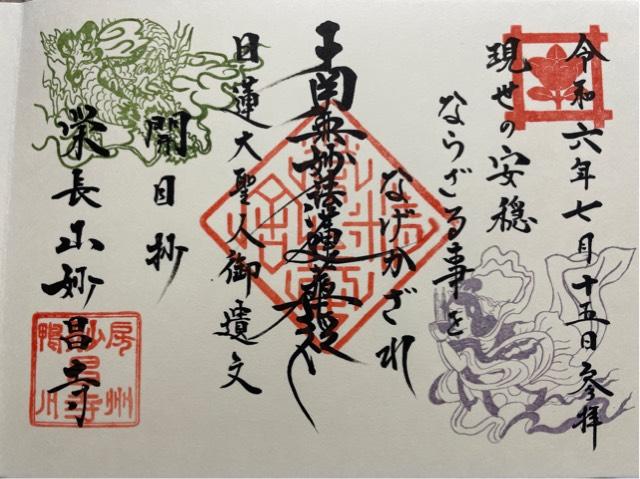 令和六年七月十五日参拝
現世の安穏
ならざる事を
なげかざれ
南無妙法蓮華経
日蓮大聖人御遺文
開目抄
栄長山妙昌寺
房州
妙昌寺
鴨川